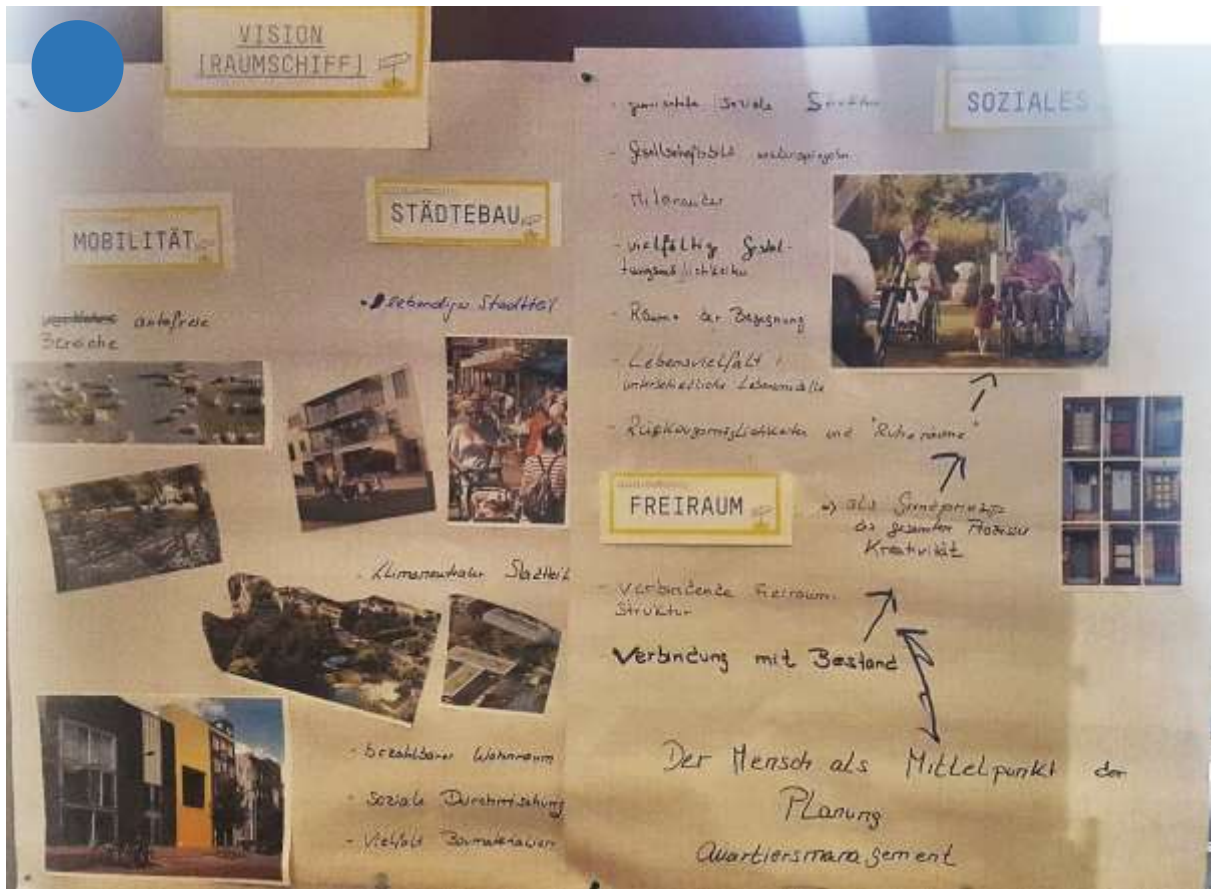 VISION
[RAUMSCHIFF]
MOBILITÄT
autofreie
Bereiche
STÄDTEBAU
• lebendiger Stadtteil
• klimaneutraler Stadtteil
- bezahlbarer Wohnraum
- Soziale Durchmischung
- Vielfalt Baumaterialien
SOZIALES
- gemischte soziale Struktur
- Gesellschaftsbild widerspiegeln
- Miteinander
- vielfältig Gestal-
tungsmöglichkeiten
- Räume der Begegnung
- Lebensvielfalt /
unterschiedliche Lebensmodelle
- Rückzugsmöglichkeiten und "Ruheräume"
FREIRAUM
=> als Grundprinzip
des gesamten Prozesses
Kreativität
- verbindende Freiraum-
struktur
- Verbindung mit Bestand
Der Mensch als Mittelpunkt der
Planung
Quartiersmanagement